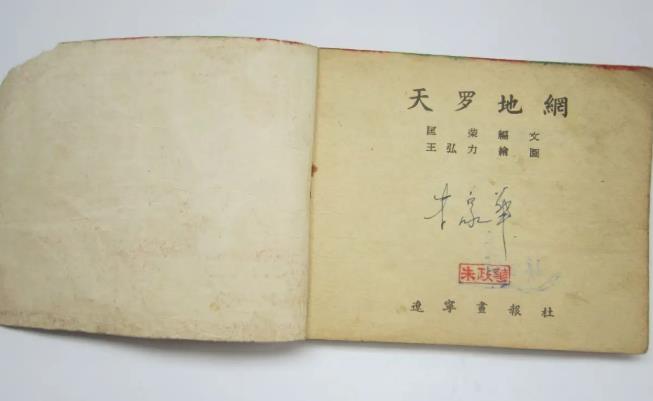 天罗地網
匡荣編文
王弘力繪圖
朱政華
遼寧畫報社